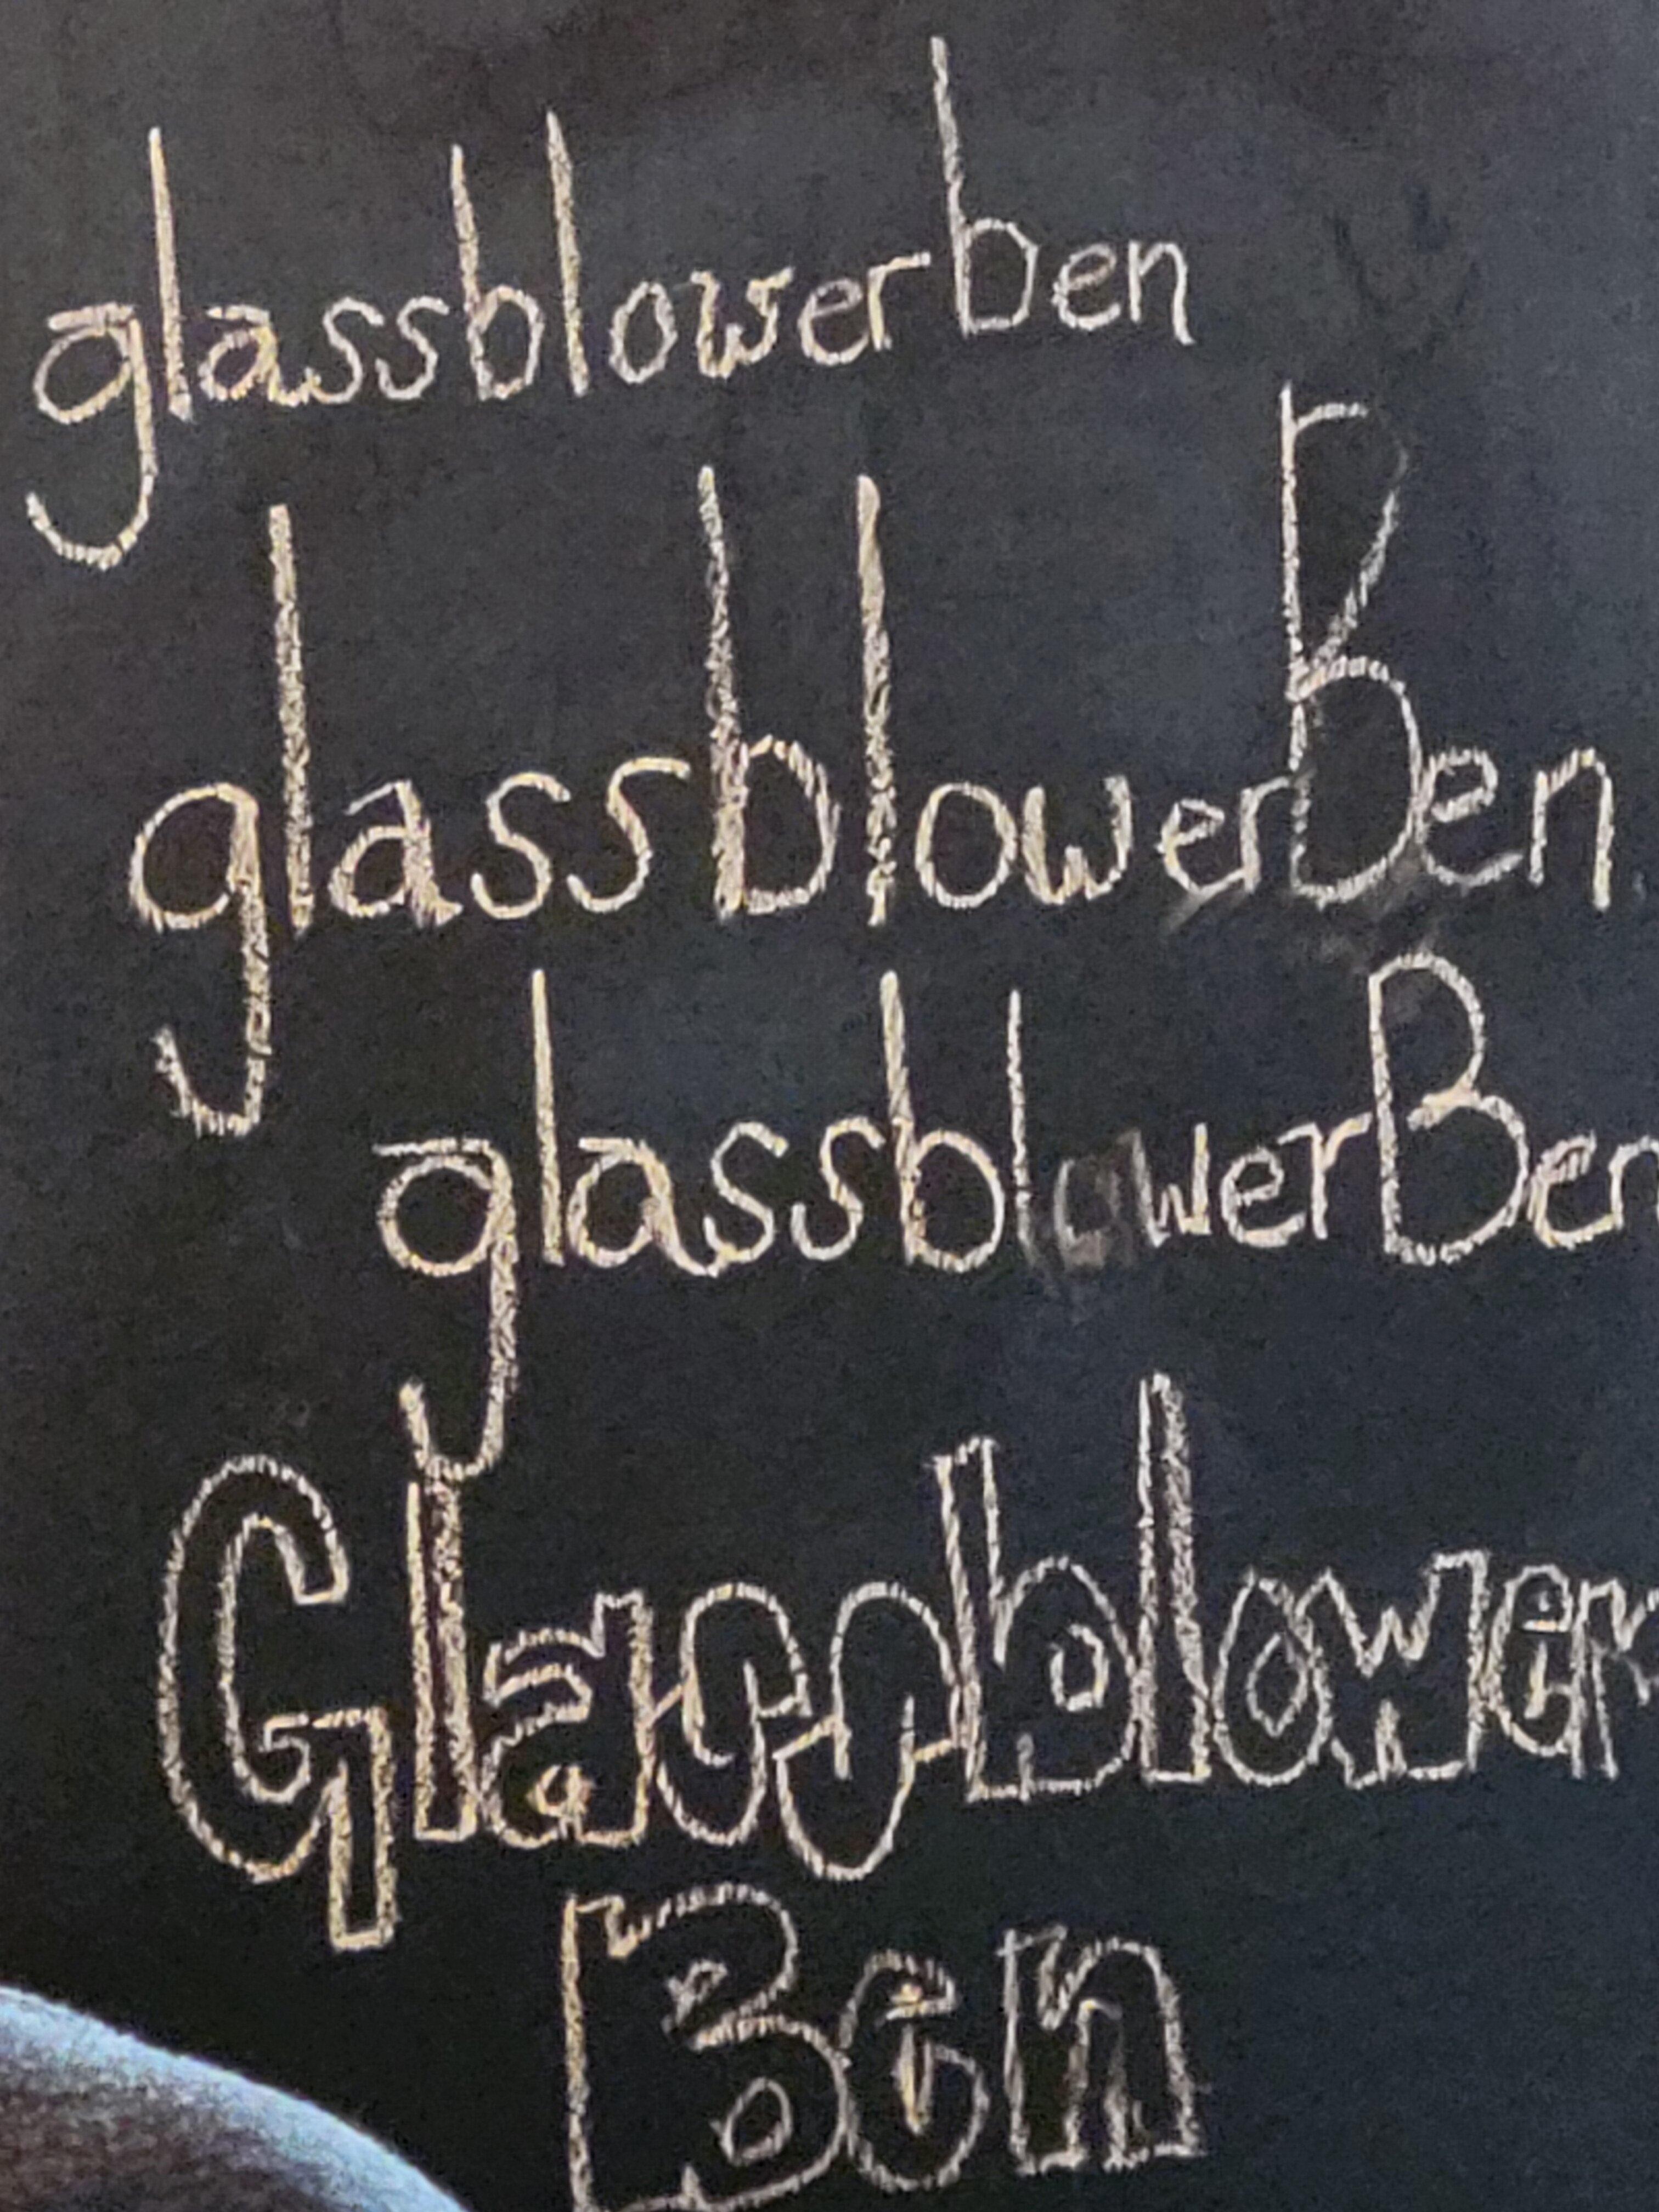 glassblowerben
glassblowerBen
glassblowerBen
Glassblower
Ben